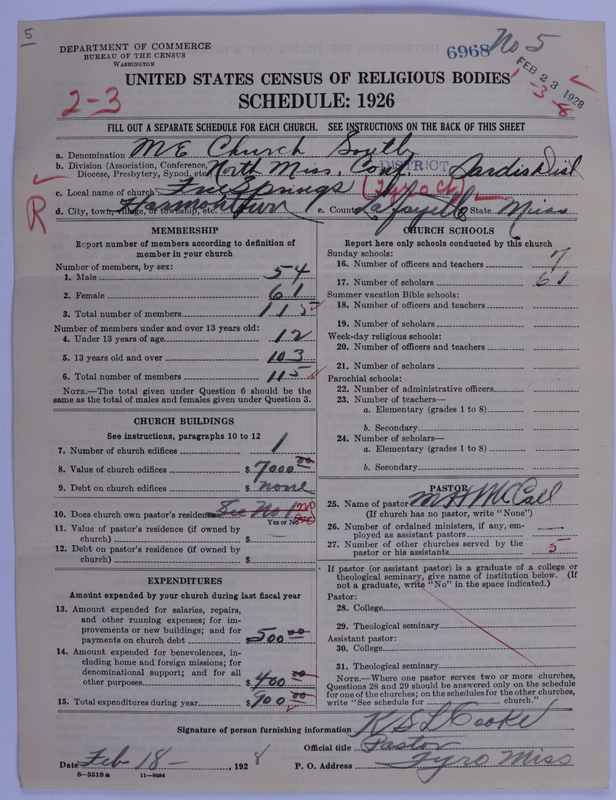 5
DEPARTMENT OF COMMERCE
BUREAU OF THE CENSUS
WASHINGTON
6968
No 5
FEB 23 1928
2-3
-3-8
UNITED STATES CENSUS OF RELIGIOUS BODIES
SCHEDULE: 1926
FILL OUT A SEPARATE SCHEDULE FOR EACH CHURCH. SEE INSTRUCTIONS ON THE BACK OF THIS SHEET
a. Denomination M E Church South
b. Division (Association, Conference, Diocese, Presbytery, Synod, etc.) North Miss. Conf. DISTRICT Sardis Dist
c. Local name of church Free Springs (Tyro Ch)
R
d. City, town, village, or township, etc. Harmontown e. County Lafayette State Miss
MEMBERSHIP
Report number of members according to definition of
member in your church
Number of members, by sex:
1. Male 54
2. Female 61
3. Total number of members 115
Number of members under and over 13 years old:
4. Under 13 years of age 12
5. 13 years old and over 103
6. Total number of members 115
NOTE.—The total given under Question 6 should be the
same as the total of males and females given under Question 3.
CHURCH BUILDINGS
See instructions, paragraphs 10 to 12
7. Number of church edifices 1
8. Value of church edifices $ 7000 00
9. Debt on church edifices $ none
10. Does church own pastor's residence See No 1 no
Yes or No
11. Value of pastor's residence (if owned by
church) $ —
12. Debt on pastor's residence (if owned by
church) $
EXPENDITURES
Amount expended by your church during last fiscal year
13. Amount expended for salaries, repairs,
and other running expenses; for im-
provements or new buildings; and for
payments on church debt $ 500 00
14. Amount expended for benevolences, in-
cluding home and foreign missions; for
denominational support; and for all
other purposes $ 400 00
15. Total expenditures during year $ 900 00
CHURCH SCHOOLS
Report here only schools conducted by this church
Sunday schools:
16. Number of officers and teachers 7
17. Number of scholars 61
Summer vacation Bible schools:
18. Number of officers and teachers
19. Number of scholars
Week-day religious schools:
20. Number of officers and teachers
21. Number of scholars
Parochial schools:
22. Number of administrative officers
23. Number of teachers—
a. Elementary (grades 1 to 8)
b. Secondary
24. Number of scholars—
a. Elementary (grades 1 to 8)
b. Secondary
PASTOR
25. Name of pastor M H McCall
(If church has no pastor, write "None")
26. Number of ordained ministers, if any, em-
ployed as assistant pastors —
27. Number of other churches served by the
pastor or his assistants 5
If pastor (or assistant pastor) is a graduate of a college or
theological seminary, give name of institution below. (If
not a graduate, write "No" in the space indicated.)
Pastor:
28. College
29. Theological seminary
Assistant pastor:
30. College
31. Theological seminary
NOTE.—Where one pastor serves two or more churches,
Questions 28 and 29 should be answered only on the schedule
for one of the churches; on the schedules for the other churches,
write "See schedule for church."
Signature of person furnishing information Cooke
Official title Pastor
Date Feb 18 - , 1928 P. O. Address Tyro Miss
8—5518a 11—9084